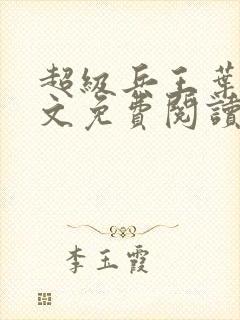 超级兵王葉
文免費閱讀
李玉霞